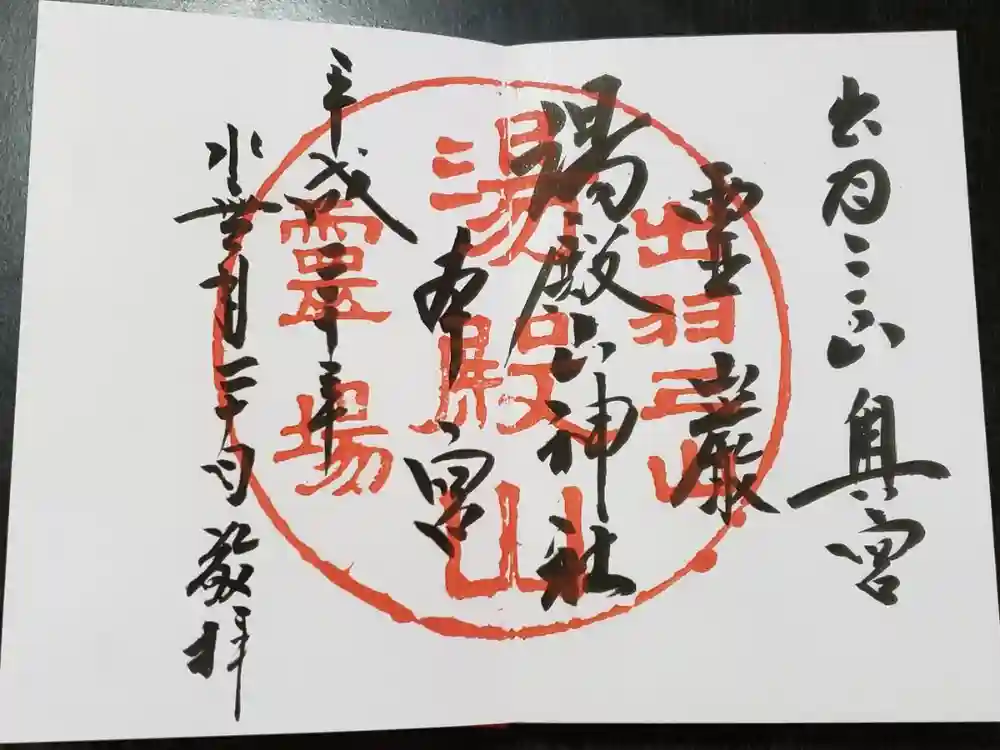 出羽三山奥宮
霊巌
湯殿山神社
本宮
平成三十年
水無月二十日敬拝
出羽三山
湯殿山
霊場